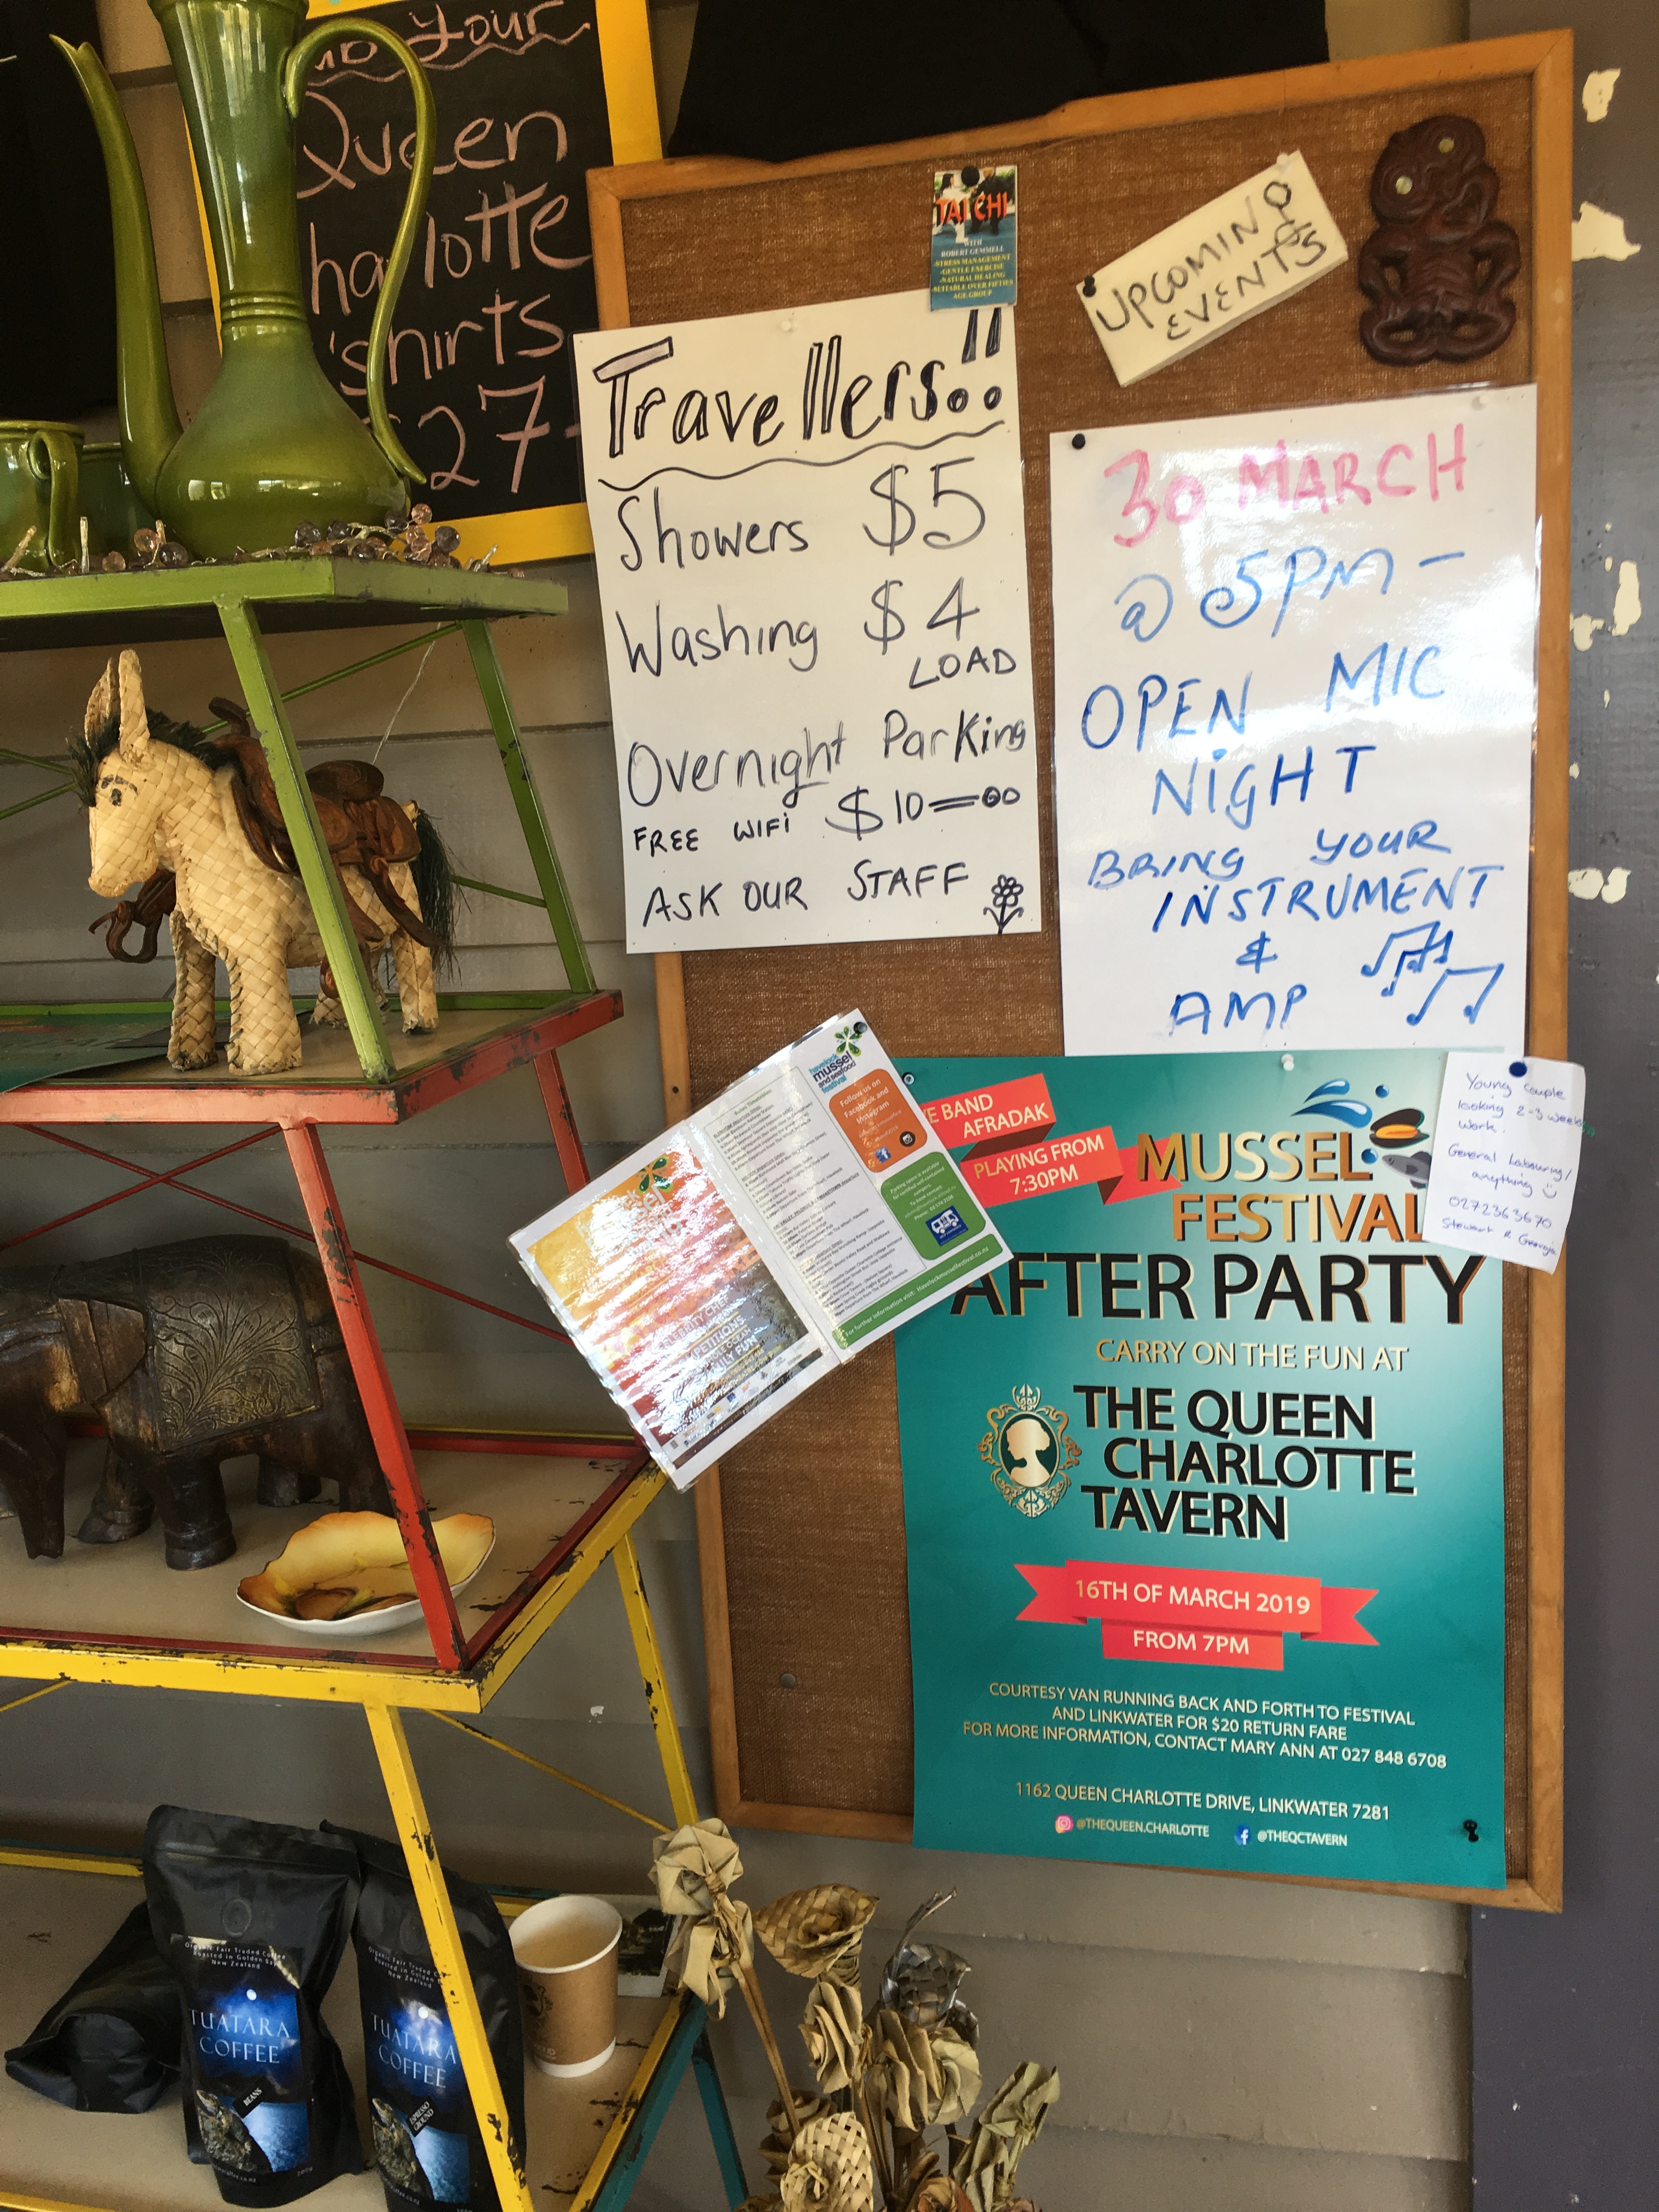 Your
Queen
harlotte
shirts
27
TAI CHI
WITH
ROBERT GEMMELL
-STRESS MANAGEMENT
-GENTLE EXERCISE
-NATURAL HEALING
-SUITABLE OVER FIFTIES
AGE GROUP
UPCOMING
EVENTS
Travellers!!
Showers $5
Washing $4
LOAD
Overnight Parking
FREE WIFI $10=00
ASK OUR STAFF
30 MARCH
@ 5PM -
OPEN MIC
NIGHT
BRING YOUR
INSTRUMENT
&
AMP
havelock
mussel
and seafood
festival
Follow us on
Facebook and
Instagram
For further information visit: Havelockmusselfestival.co.nz
FAMILY FUN
VE BAND
AFRADAK
PLAYING FROM
7:30PM
MUSSEL
FESTIVAL
AFTER PARTY
CARRY ON THE FUN AT
THE QUEEN
CHARLOTTE
TAVERN
16TH OF MARCH 2019
FROM 7PM
COURTESY VAN RUNNING BACK AND FORTH TO FESTIVAL
AND LINKWATER FOR $20 RETURN FARE
FOR MORE INFORMATION, CONTACT MARY ANN AT 027 848 6708
1162 QUEEN CHARLOTTE DRIVE, LINKWATER 7281
@THEQUEEN.CHARLOTTE @THEQCTAVERN
Young couple
looking 2-3 weeks
work.
General Labouring/
anything
0272363670
Stewart & Georgia
Organic Fair Traded Coffee
Roasted in Golden Bay
New Zealand
TUATARA
COFFEE
BEANS
Organic Fair Traded C
Roasted in Golden
New Zealand
TUATARA
COFFEE
ESPRESSO
GROUND